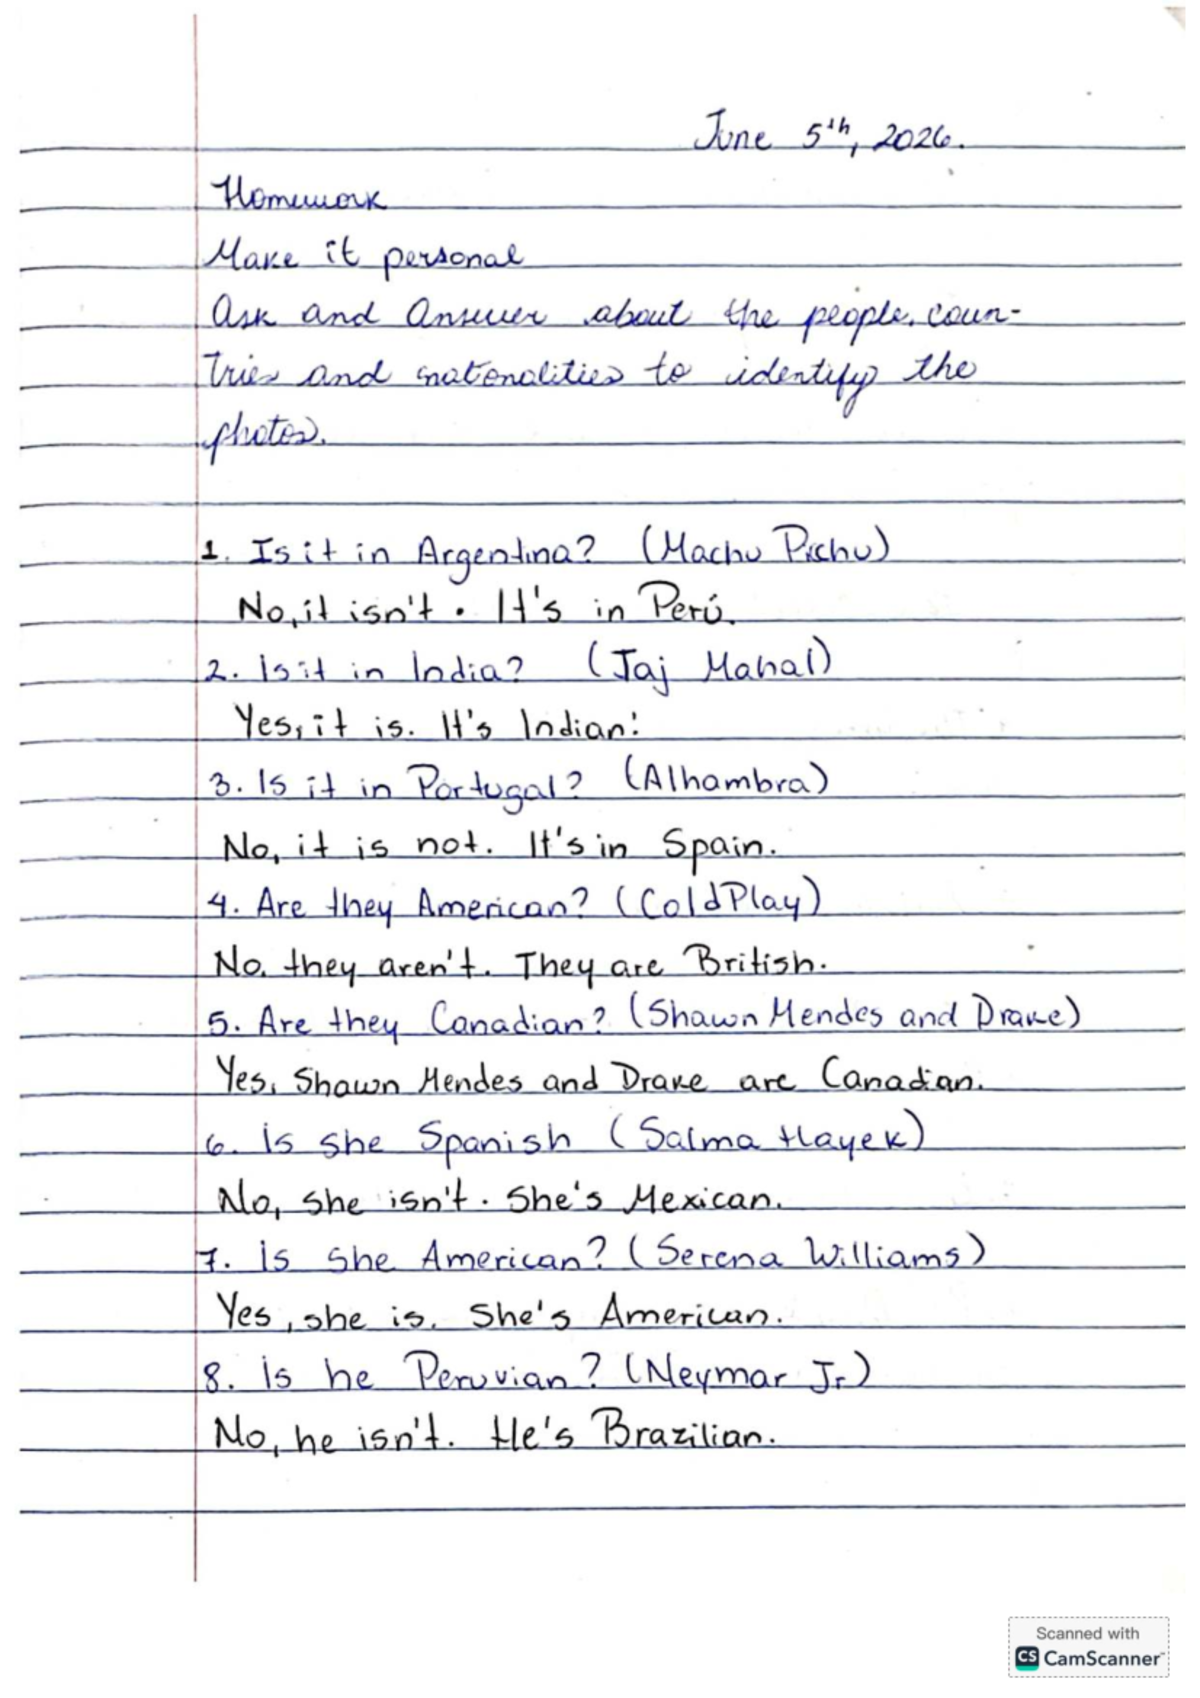 June 5th, 2026.
Homework
Make it personal
Ask and Answer about the people, coun-
tries and natonalities to identify the
photos.
1. Is it in Argentina? (Machu Pichu)
No, it isn't. It's in Perú.
2. Is it in India? (Taj Mahal)
Yes, it is. It's Indian.
3. Is it in Portugal? (Alhambra)
No, it is not. It's in Spain.
4. Are they American? (ColdPlay)
No, they aren't. They are British.
5. Are they Canadian? (Shawn Mendes and Drake)
Yes, Shawn Mendes and Drake are Canadian.
6. is she Spanish (Salma Hayek)
No, she isn't. She's Mexican.
7. is she American? (Serena Williams)
Yes, she is. She's American.
8. is he Peruvian? (Neymar Jr)
No, he isn't. He's Brazilian.
Scanned with
CS CamScanner